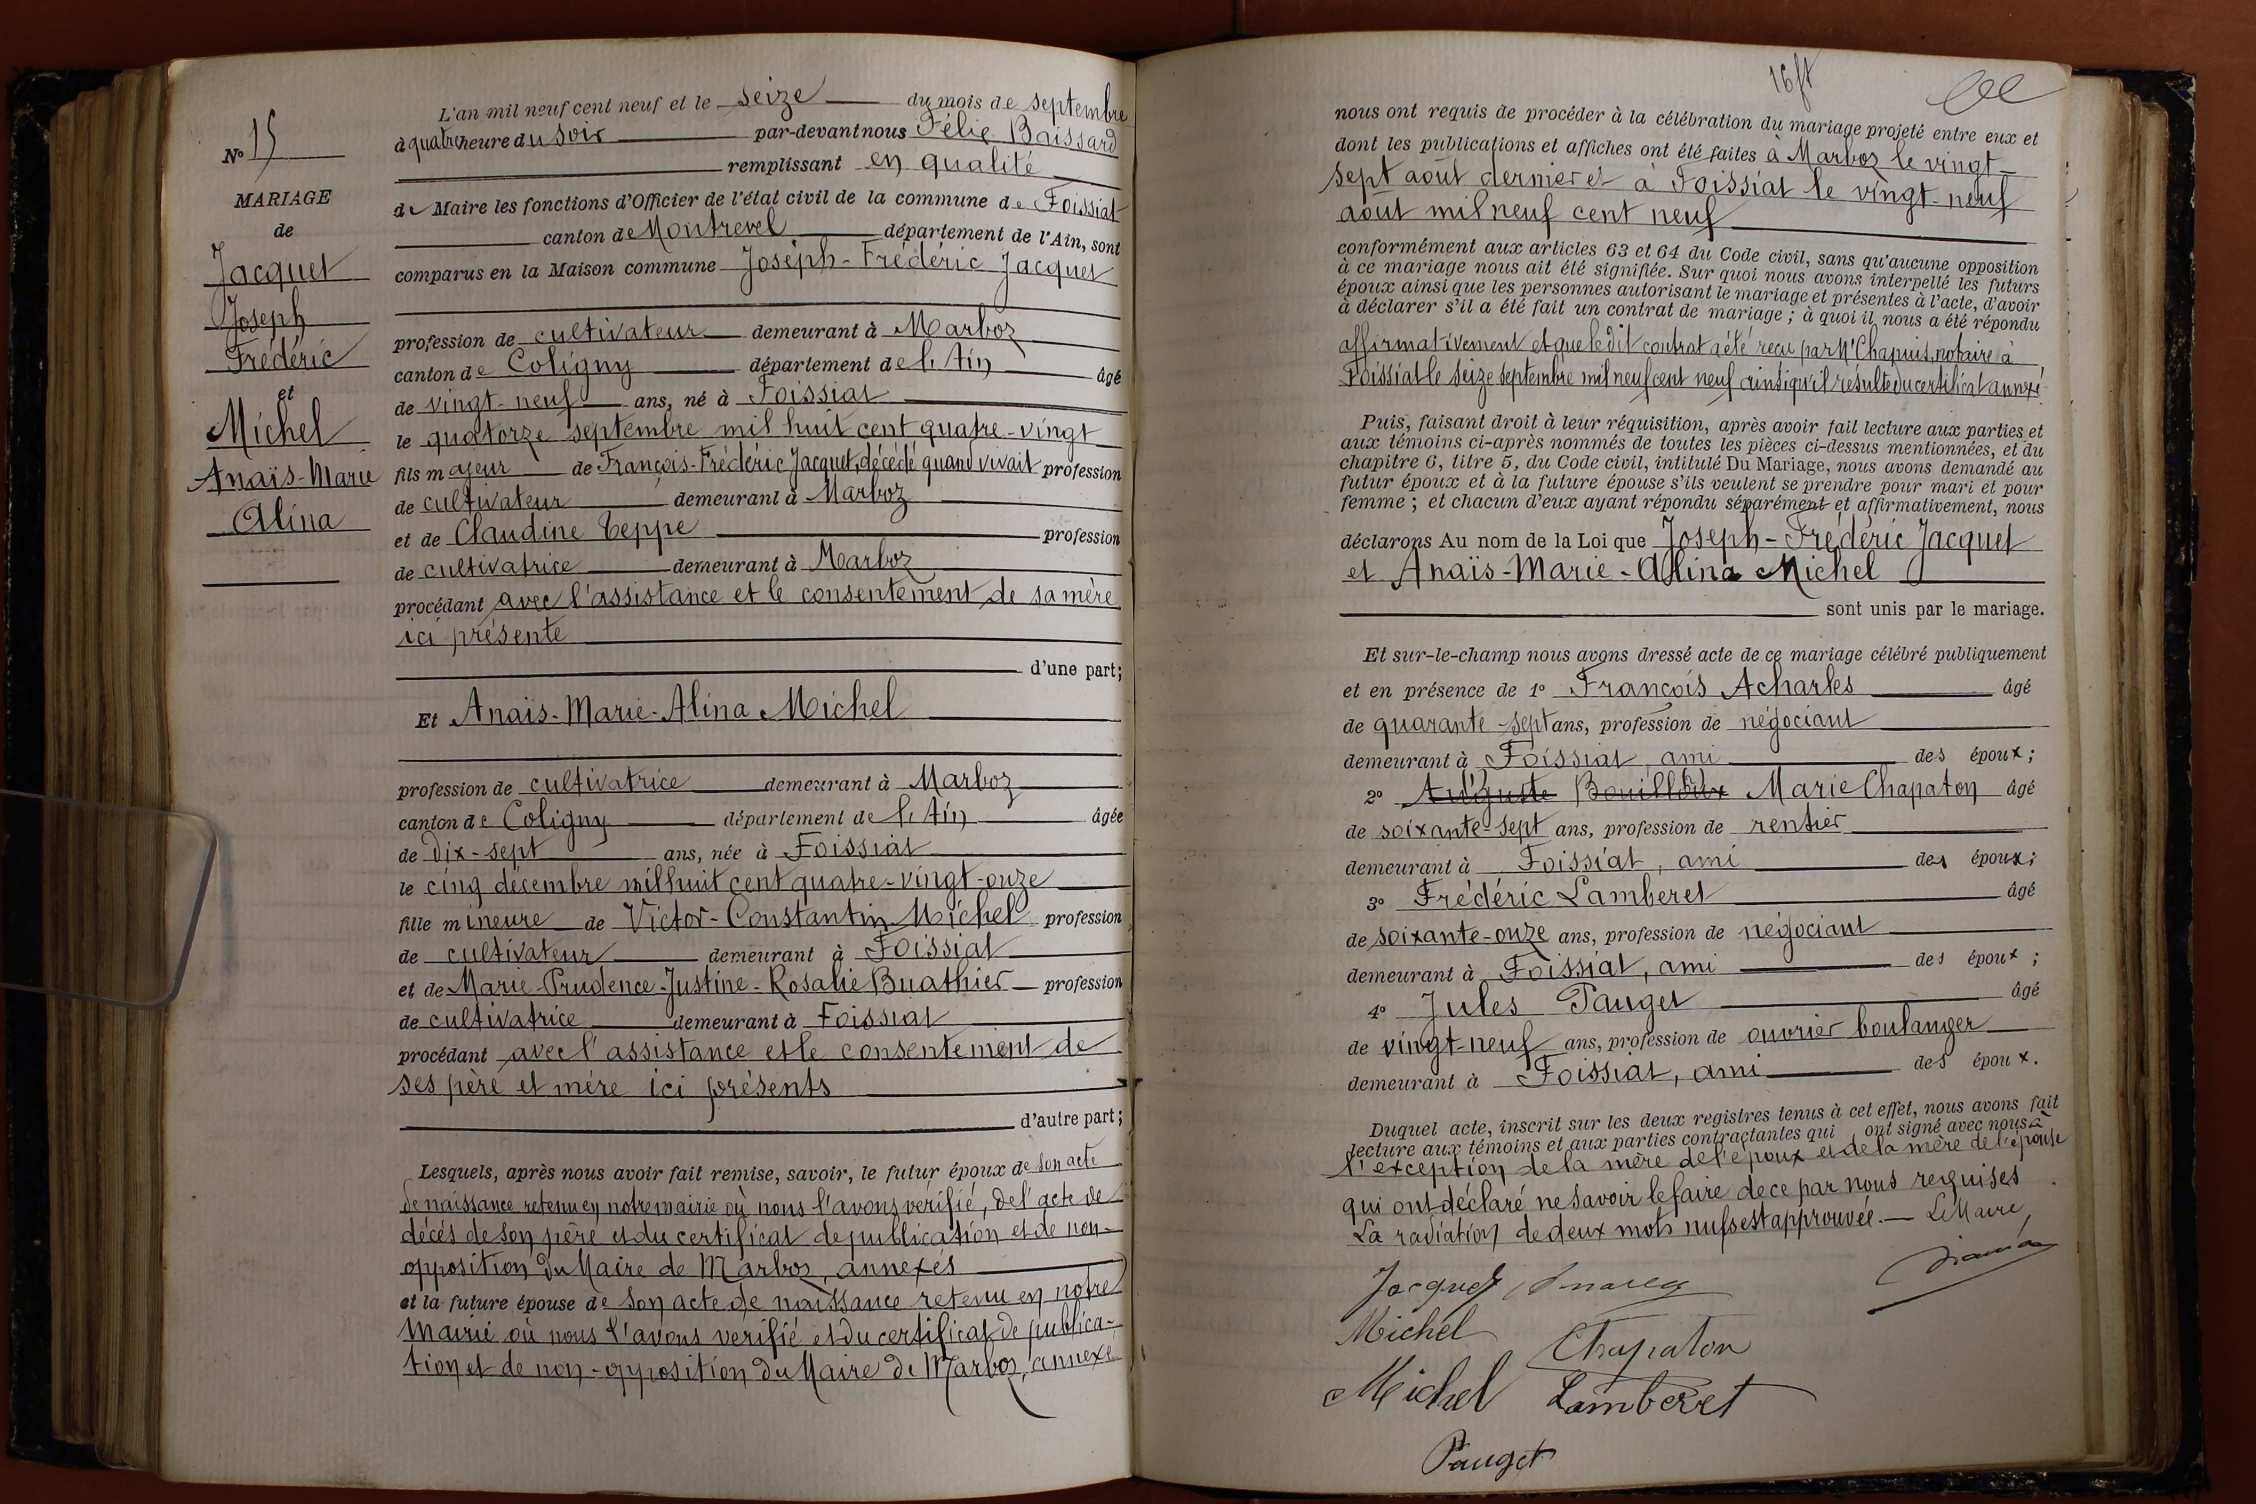 Nº 15
MARIAGE
de
Jacquet
Joseph
Frédéric
et
Michel
Anaïs-Marie
Alina
L'an mil neuf cent neuf et le seize du mois de septembre
à quatre heure du soir par-devant nous Félix Baissard
remplissant en qualité
de Maire les fonctions d'Officier de l'état civil de la commune de Foissiat
canton de Montrevel département de l'Ain, sont
comparus en la Maison commune Joseph-Frédéric Jacquet
profession de cultivateur demeurant à Marboz
canton de Coligny département de l'Ain âgé
de vingt-neuf ans, né à Foissiat
le quatorze septembre mil huit cent quatre-vingt
fils majeur de François-Frédéric Jacquet, décédé quand vivait profession
de cultivateur demeurant à Marboz
et de Claudine Teppe profession
de cultivatrice demeurant à Marboz
procédant avec l'assistance et le consentement de sa mère
ici présente
d'une part;
Et Anaïs-Marie-Alina Michel
profession de cultivatrice demeurant à Marboz
canton de Coligny département de l'Ain âgée
de dix-sept ans, née à Foissiat
le cinq décembre mil huit cent quatre-vingt-onze
fille mineure de Victor-Constantin Michel profession
de cultivateur demeurant à Foissiat
et de Marie-Prudence-Justine-Rosalie Buathier profession
de cultivatrice demeurant à Foissiat
procédant avec l'assistance et le consentement de
ses père et mère ici présents
d'autre part;
Lesquels, après nous avoir fait remise, savoir, le futur époux de son acte
de naissance retenu en notre mairie où nous l'avons vérifié, de l'acte de
décès de son père et du certificat de publication et de non-
opposition du Maire de Marboz, annexés
et la future épouse de son acte de naissance retenu en notre
Mairie où nous l'avons vérifié et du certificat de publica-
tion et de non-opposition du Maire de Marboz, annexé
16 ft
nous ont requis de procéder à la célébration du mariage projeté entre eux et
dont les publications et affiches ont été faites à Marboz le vingt-
sept août dernier et à Foissiat le vingt-neuf
août mil neuf cent neuf
conformément aux articles 63 et 64 du Code civil, sans qu'aucune opposition
à ce mariage nous ait été signifiée. Sur quoi nous avons interpellé les futurs
époux ainsi que les personnes autorisant le mariage et présentes à l'acte, d'avoir
à déclarer s'il a été fait un contrat de mariage ; à quoi il nous a été répondu
affirmativement et que ledit contrat a été reçu par Mᵉ Chapuis, notaire à
Foissiat le seize septembre mil neuf cent neuf ainsi qu'il résulte du certificat annexé
Puis, faisant droit à leur réquisition, après avoir fail lecture aux parties et
aux témoins ci-après nommés de toutes les pièces ci-dessus mentionnées, et du
chapitre 6, titre 5, du Code civil, intitulé Du Mariage, nous avons demandé au
futur époux et à la future épouse s'ils veulent se prendre pour mari et pour
femme ; et chacun d'eux ayant répondu séparément et affirmativement, nous
déclarons Au nom de la Loi que Joseph-Frédéric Jacquet
et Anaïs-Marie-Alina Michel
sont unis par le mariage.
Et sur-le-champ nous avons dressé acte de ce mariage célébré publiquement
et en présence de 1º François Acharles âgé
de quarante-sept ans, profession de négociant
demeurant à Foissiat, ami des époux;
2º Auguste Bouilloux Marie Chapaton âgé
de soixante-sept ans, profession de rentier
demeurant à Foissiat, ami des époux;
3º Frédéric Lamberet âgé
de soixante-onze ans, profession de négociant
demeurant à Foissiat, ami des époux;
4º Jules Pauget âgé
de vingt-neuf ans, profession de ouvrier boulanger
demeurant à Foissiat, ami des époux.
Duquel acte, inscrit sur les deux registres tenus à cet effet, nous avons fait
lecture aux témoins et aux parties contractantes qui ont signé avec nous à
l'exception de la mère de l'époux et de la mère de l'épouse
qui ont déclaré ne savoir le faire de ce par nous requises
La radiation de deux mots nuls est approuvée. Le Maire,
Jacquet
Michel
Chapaton
Michel Lamberet
Pauget